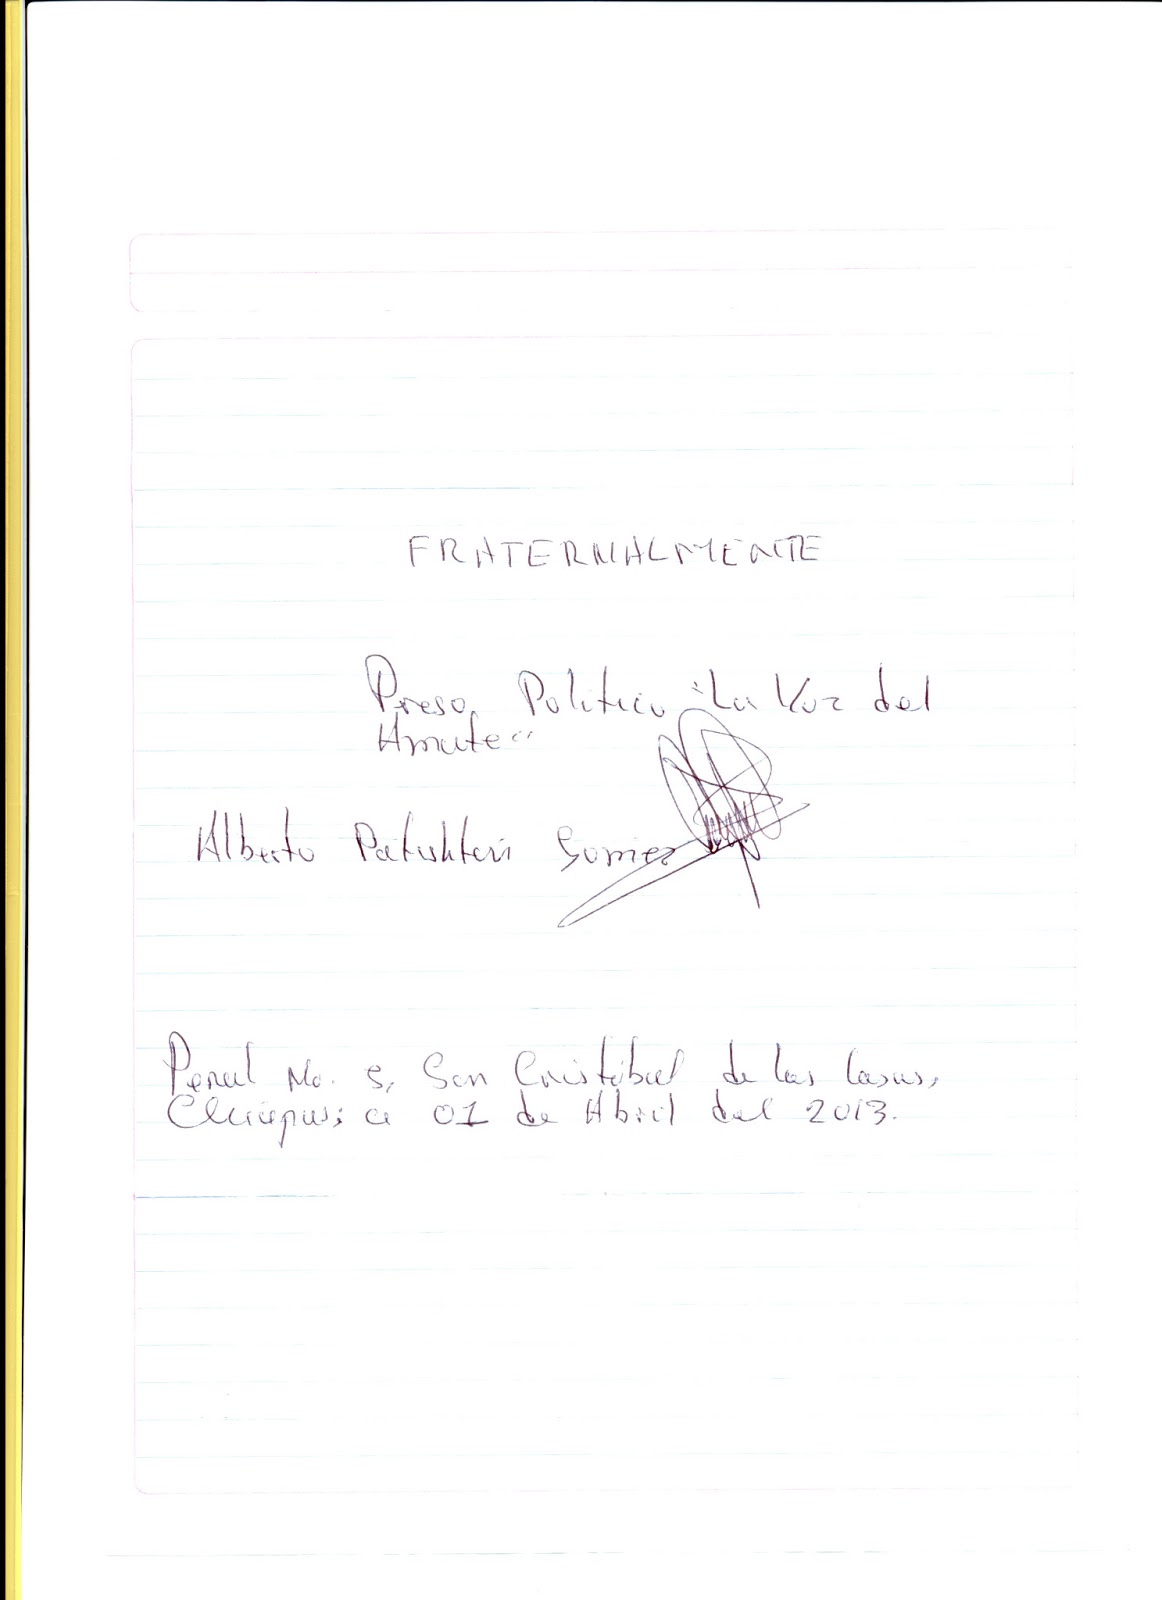 FRATERNALMENTE
Preso, Politico "La Voz del
Amate"
Alberto Patishtan Gomez
Penal No. 5, San Cristóbal de las Casas,
Chiapas; a 01 de Abril del 2013.